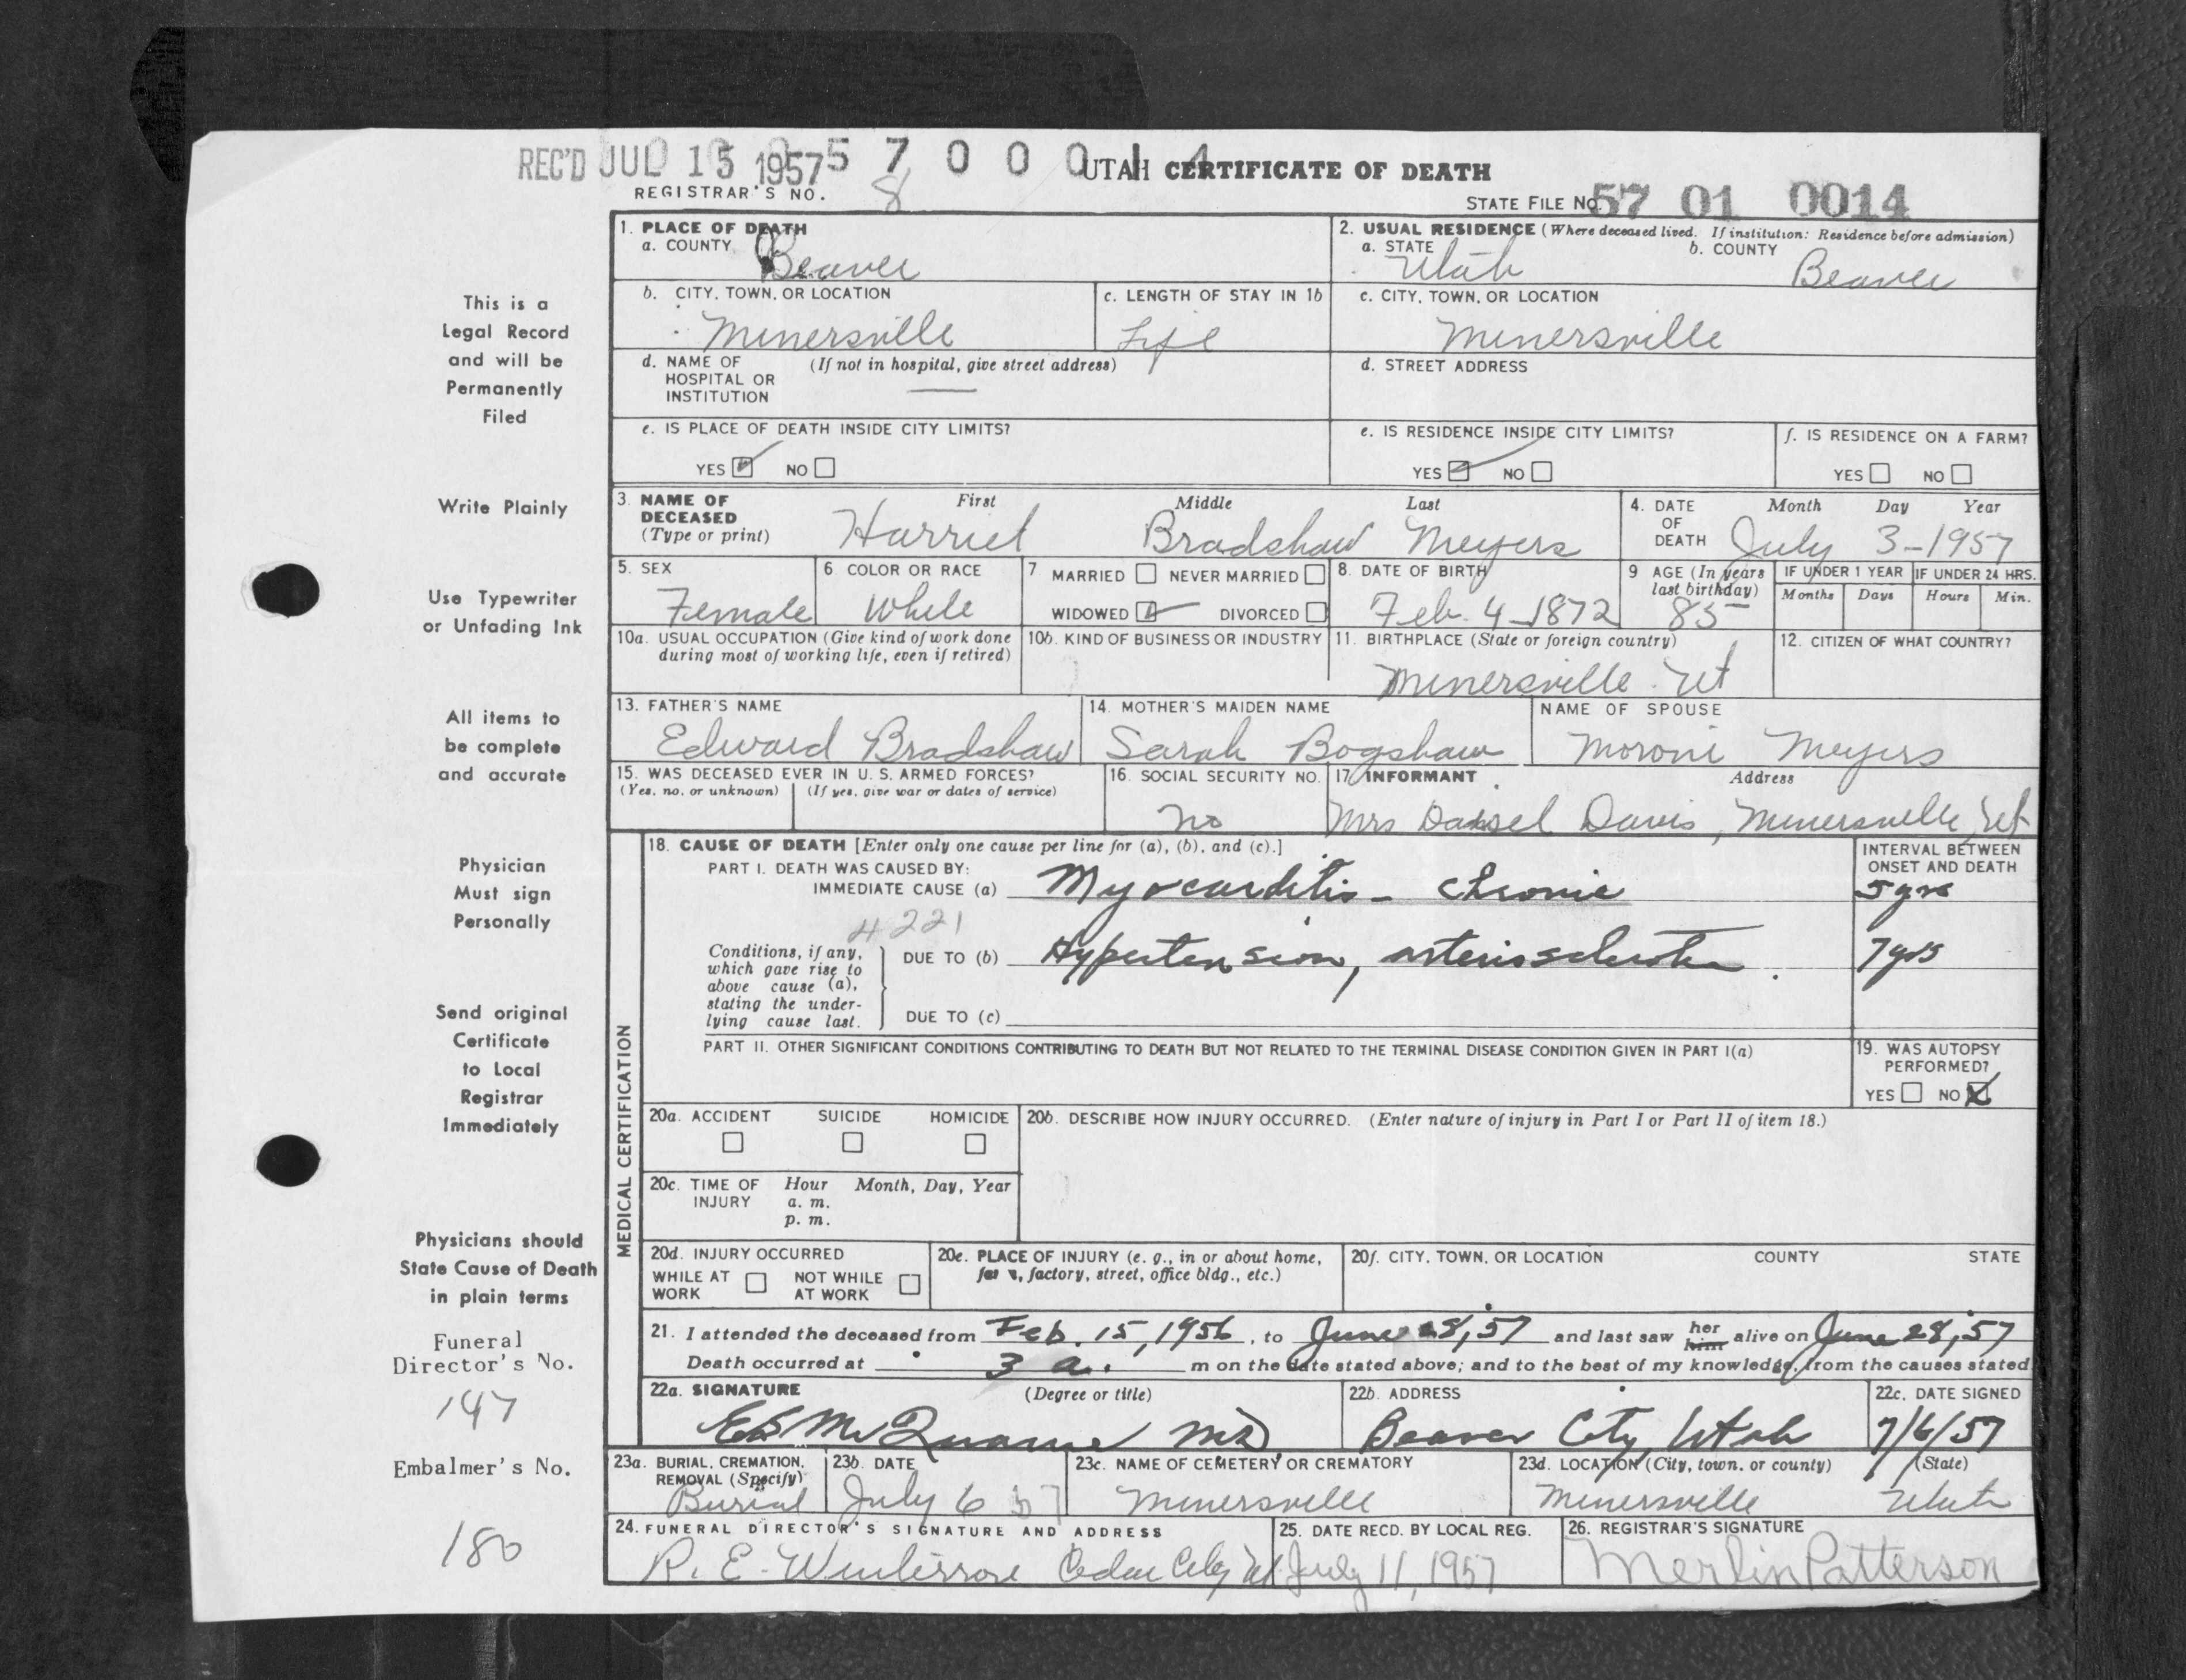 REC'D JUL 15 1957 5 7 0 0 0 1 4 UTAH CERTIFICATE OF DEATH
REGISTRAR'S NO. 8
STATE FILE NO. 57 01 0014
1. PLACE OF DEATH
a. COUNTY Beaver
2. USUAL RESIDENCE (Where deceased lived. If institution: Residence before admission)
a. STATE Utah b. COUNTY Beaver
b. CITY, TOWN, OR LOCATION Minersville
c. LENGTH OF STAY IN 1b Life
c. CITY, TOWN, OR LOCATION Minersville
d. NAME OF HOSPITAL OR INSTITUTION (If not in hospital, give street address) —
d. STREET ADDRESS
e. IS PLACE OF DEATH INSIDE CITY LIMITS?
YES NO
e. IS RESIDENCE INSIDE CITY LIMITS?
YES NO
f. IS RESIDENCE ON A FARM?
YES NO
3. NAME OF DECEASED (Type or print) First Middle Last
Harriet Bradshaw Meyers
4. DATE OF DEATH Month Day Year
July 3-1957
5. SEX Female
6. COLOR OR RACE White
7 MARRIED NEVER MARRIED
WIDOWED DIVORCED
8. DATE OF BIRTH Feb. 4-1872
9 AGE (In years last birthday) 85
IF UNDER 1 YEAR Months Days
IF UNDER 24 HRS. Hours Min.
10a. USUAL OCCUPATION (Give kind of work done during most of working life, even if retired)
10b. KIND OF BUSINESS OR INDUSTRY
11. BIRTHPLACE (State or foreign country) Minersville Ut
12. CITIZEN OF WHAT COUNTRY?
13. FATHER'S NAME Edward Bradshaw
14. MOTHER'S MAIDEN NAME Sarah Bogshaw
NAME OF SPOUSE Moroni Meyers
15. WAS DECEASED EVER IN U. S. ARMED FORCES?
(Yes, no, or unknown) (If yes, give war or dates of service)
16. SOCIAL SECURITY NO. no
17. INFORMANT Address
Mrs Davis, Minersville, Ut
MEDICAL CERTIFICATION
18. CAUSE OF DEATH [Enter only one cause per line for (a), (b), and (c).]
INTERVAL BETWEEN ONSET AND DEATH
PART I. DEATH WAS CAUSED BY:
IMMEDIATE CAUSE (a) Myocarditis - chronic 5 yrs
4221
Conditions, if any, which gave rise to above cause (a), stating the underlying cause last.
DUE TO (b) Hypertension, 7 yrs
DUE TO (c)
PART II. OTHER SIGNIFICANT CONDITIONS CONTRIBUTING TO DEATH BUT NOT RELATED TO THE TERMINAL DISEASE CONDITION GIVEN IN PART I(a)
19. WAS AUTOPSY PERFORMED?
YES NO X
20a. ACCIDENT SUICIDE HOMICIDE
20b. DESCRIBE HOW INJURY OCCURRED. (Enter nature of injury in Part I or Part II of item 18.)
20c. TIME OF INJURY Hour Month, Day, Year
a. m.
p. m.
20d. INJURY OCCURRED
WHILE AT WORK NOT WHILE AT WORK
20e. PLACE OF INJURY (e. g., in or about home, factory, street, office bldg., etc.)
20f. CITY, TOWN, OR LOCATION COUNTY STATE
21. I attended the deceased from Feb. 15, 1956, to June 28, 57 and last saw her him alive on June 28, 57
Death occurred at 3 a. m on the date stated above; and to the best of my knowledge, from the causes stated
22a. SIGNATURE (Degree or title)
MD
22b. ADDRESS Beaver City, Utah
22c. DATE SIGNED 7/6/57
23a. BURIAL, CREMATION, REMOVAL (Specify) Burial
23b. DATE July 6 57
23c. NAME OF CEMETERY OR CREMATORY Minersville
23d. LOCATION (City, town, or county) (State)
Minersville Utah
24. FUNERAL DIRECTOR'S SIGNATURE AND ADDRESS
R. E. Winterrose Cedar City Ut
25. DATE RECD. BY LOCAL REG. July 11, 1957
26. REGISTRAR'S SIGNATURE Merlin Patterson
This is a
Legal Record
and will be
Permanently
Filed
Write Plainly
Use Typewriter
or Unfading Ink
All items to
be complete
and accurate
Physician
Must sign
Personally
Send original
Certificate
to Local
Registrar
Immediately
Physicians should
State Cause of Death
in plain terms
Funeral
Director's No.
147
Embalmer's No.
180